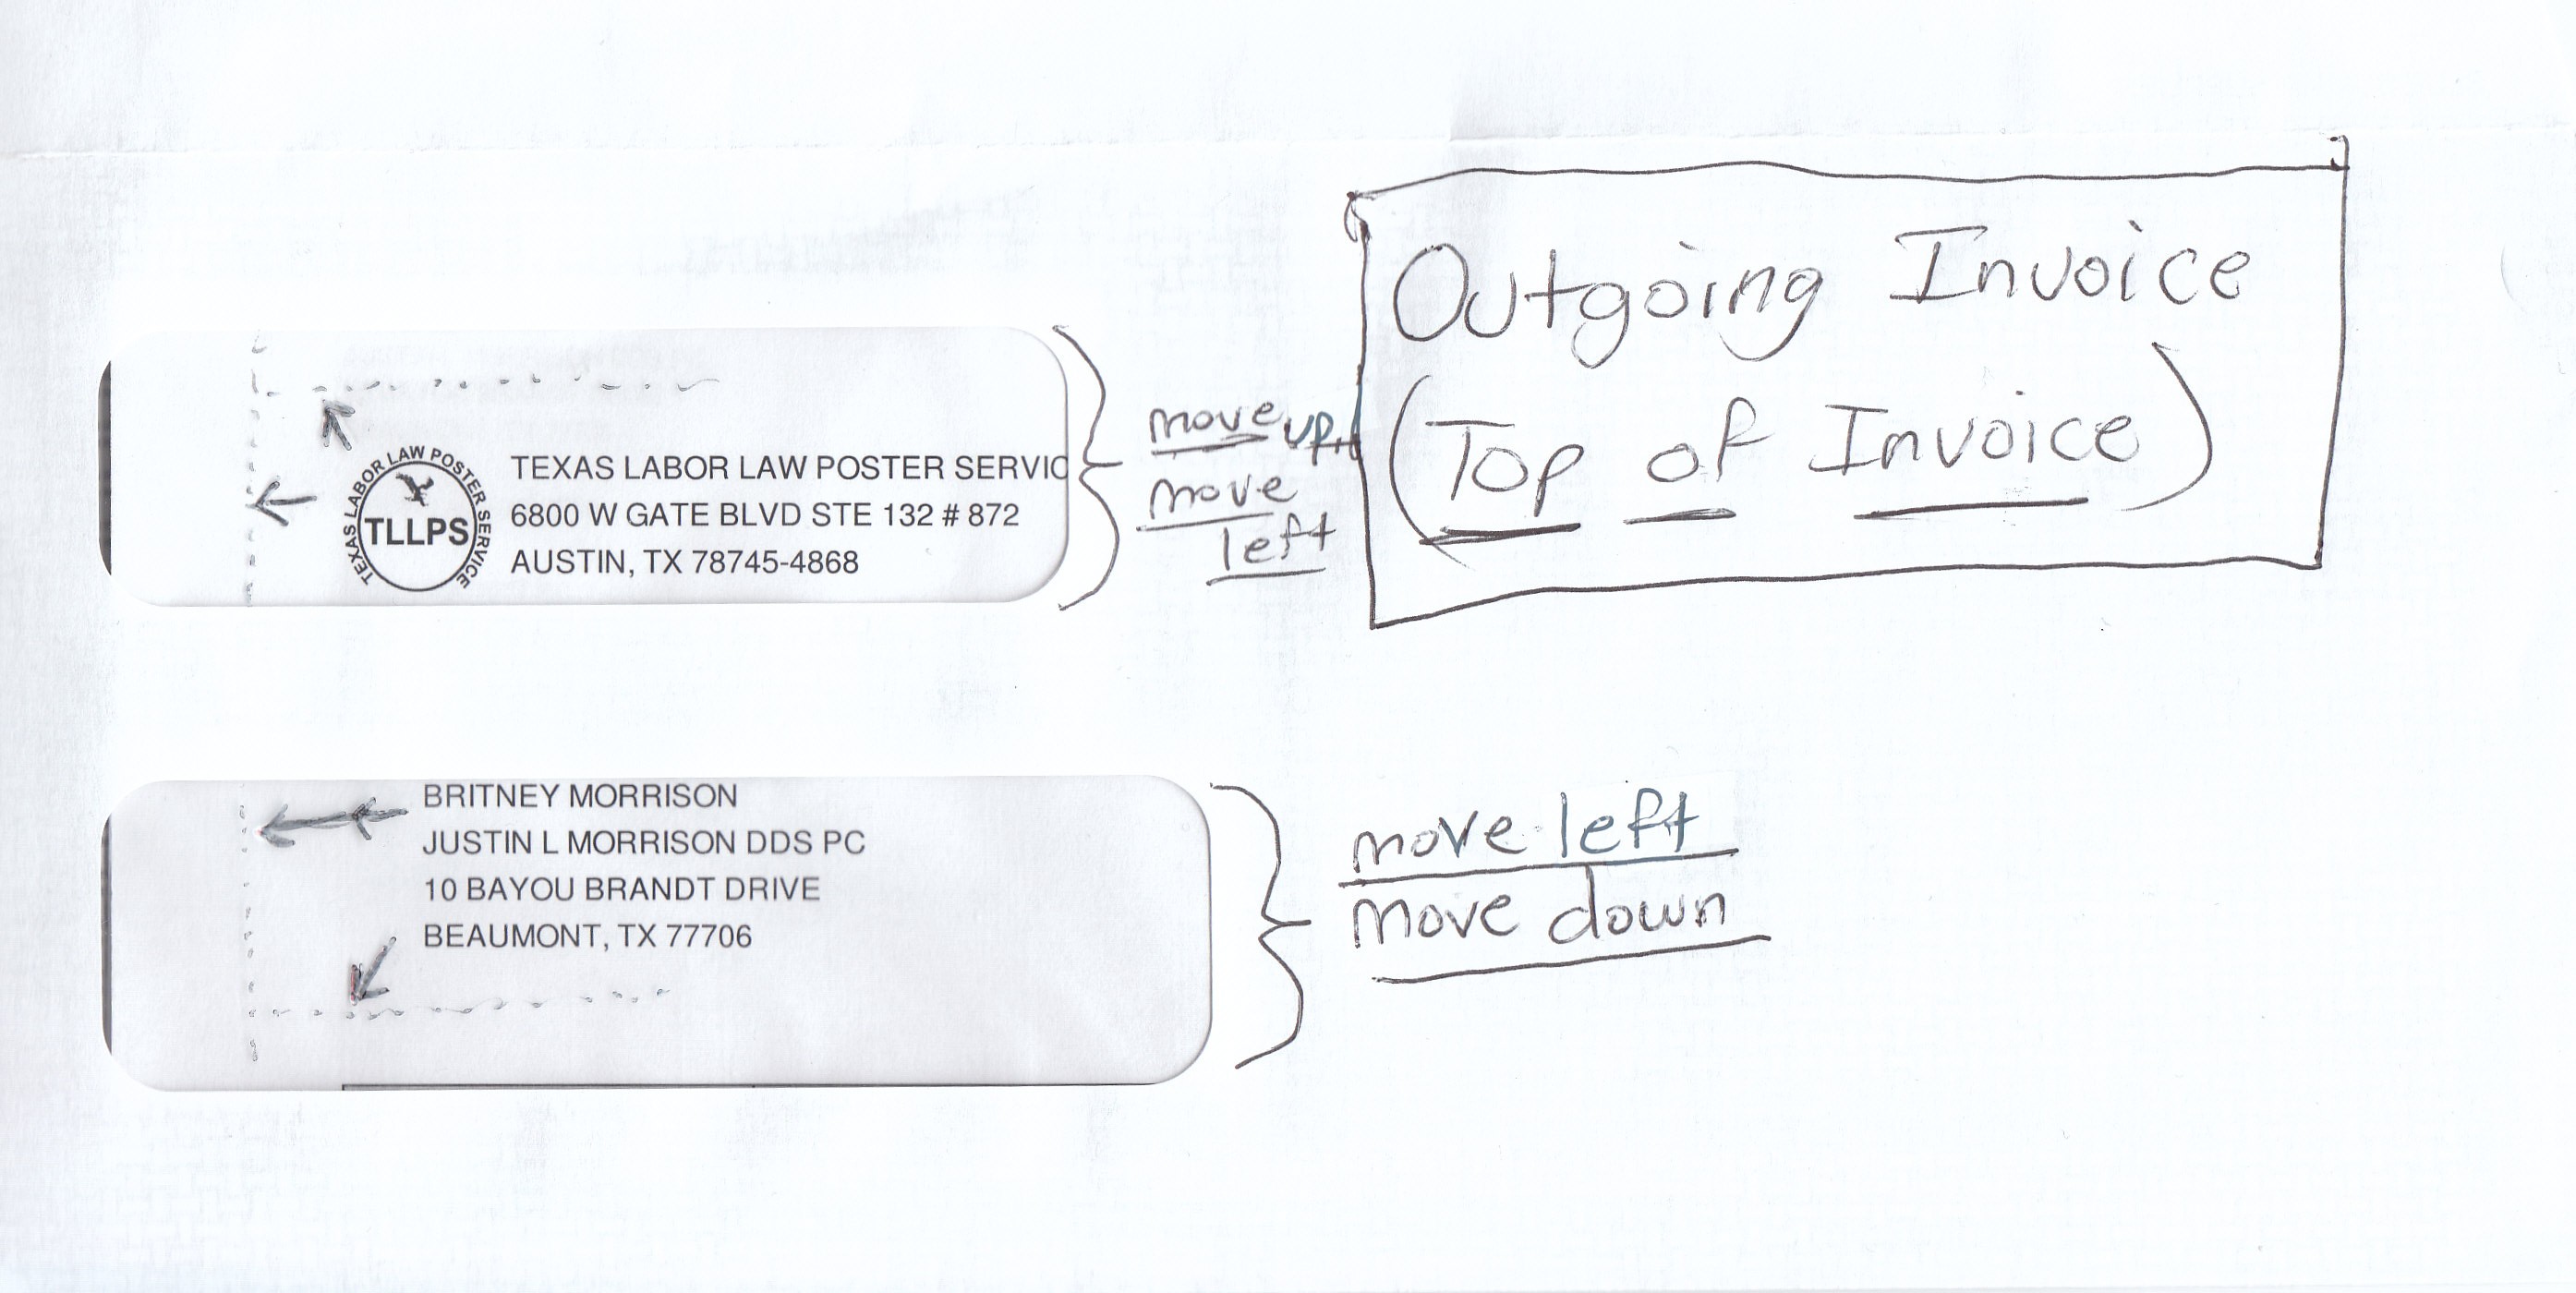 Outgoing Invoice
(Top of Invoice)
TEXAS LABOR LAW POSTER SERVICE
TLLPS
TEXAS LABOR LAW POSTER SERVIC
6800 W GATE BLVD STE 132 # 872
AUSTIN, TX 78745-4868
move up +
move
left
BRITNEY MORRISON
JUSTIN L MORRISON DDS PC
10 BAYOU BRANDT DRIVE
BEAUMONT, TX 77706
move left
move down